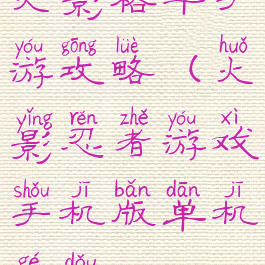 yóu gōng lüè huǒ
游攻略(火
yǐng rěn zhě yóu xì
影忍者游戏
shǒu jī bǎn dān jī
手机版单机
gé dòu